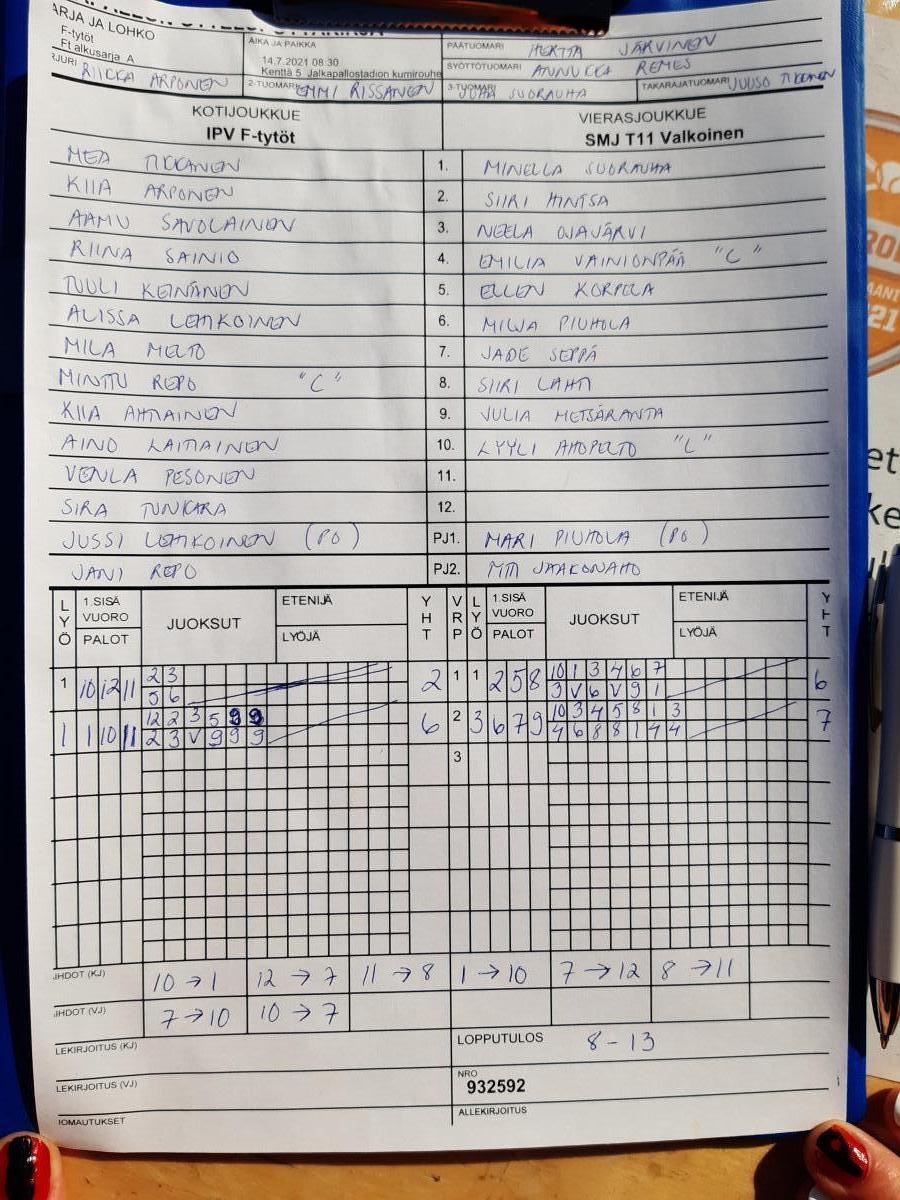 ARJA JA LOHKO
F-tytöt
Ft alkusarja A
AIKA JA PAIKKA
14.7.2021 08:30
Kenttä 5 Jalkapallostadion kumirouhe
PÄÄTUOMARI HERTTA JÄRVINEN
SYÖTTÖTUOMARI ANNUKKA REMES
RJURI RIIKKA ARPONEN
2-TUOMARI EMMI RISSANEN
3-TUOMARI JUHA SUORAUHA
TAKARAJATUOMARI JUUSO TIKKANEN
KOTIJOUKKUE
IPV F-tytöt
VIERASJOUKKUE
SMJ T11 Valkoinen
MEA TIKKANEN 1. MINELLA SUORAUHA
KIIA ARPONEN 2. SIIRI HINTSA
AAMU SAVOLAINEN 3. NEELA OJAJÄRVI
RIINA SAINIO 4. EMILIA VAINIONPÄÄ "C"
TUULI KEINÄNEN 5. ELLEN KORPELA
ALISSA LEHKOINEN 6. MILJA PIUHOLA
MILA MELTO 7. JADE SEPPÄ
MINTTU REPO "C" 8. SIIRI LAHTI
KIIA AHTIAINEN 9. JULIA METSÄRANTA
AINO LAITIAINEN 10. LYYLI AHOPELTO "L"
VENLA PESONEN 11.
SIRA TUNKARA 12.
JUSSI LEHKOINEN (PO) PJ1. MARI PIUHOLA (PO)
JANI REPO PJ2. JAAKONAHO
LYÖ 1.SISÄ VUORO PALOT JUOKSUT ETENIJÄ LYÖJÄ YHT VRP LYÖ 1.SISÄ VUORO PALOT JUOKSUT ETENIJÄ LYÖJÄ YHT
1 10 12 11 2 3 2 1 1 2 5 8 10 1 3 4 6 7 6
5 6 3 V 6 V 9 1
1 1 10 11 12 2 3 5 9 9 6 2 3 6 7 9 10 3 4 5 8 1 3 7
2 3 V 9 9 9 4 6 8 8 1 4 4
3
IHDOT (KJ) 10 → 1 12 → 7 11 → 8 1 → 10 7 → 12 8 → 11
IHDOT (VJ) 7 → 10 10 → 7
LEKIRJOITUS (KJ)
LOPPUTULOS 8 - 13
LEKIRJOITUS (VJ)
NRO
932592
IOMAUTUKSET
ALLEKIRJOITUS